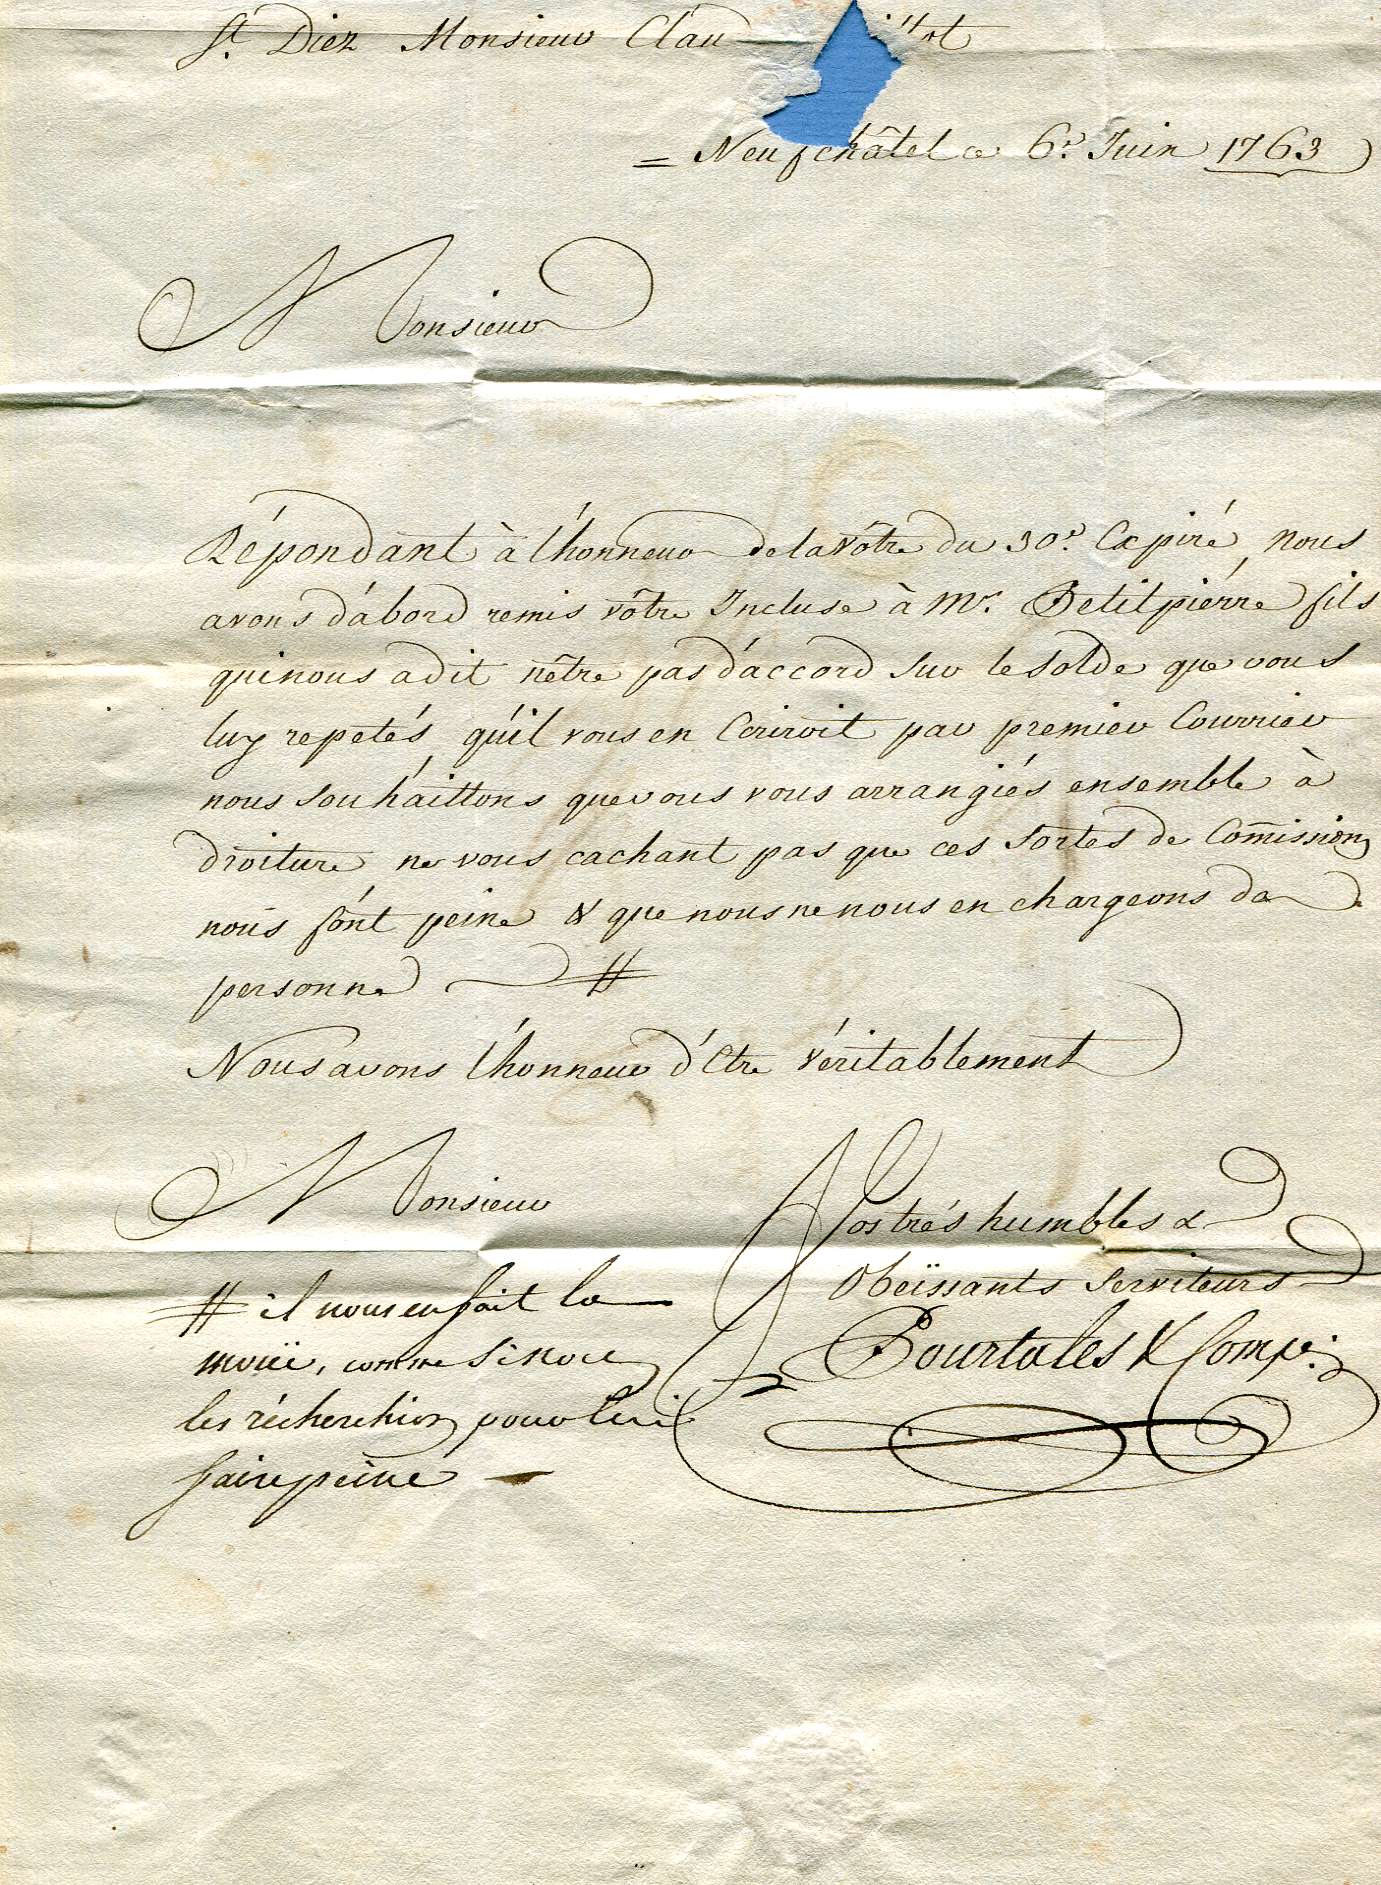 St. Diez Monsieur Clau
= Neufchâtel ce 6e. Juin 1763
Monsieur
Répondant à l'honneur de la vôtre du 30e. Expiré, nous
avons d'abord remis vôtre Incluse à Mr. Petitpiérre fils
qui nous a dit nêtre pas d'accord sur le solde que vous
luy repetés, qu'il vous en Ecriroit par premier Courrier
nous souháittons que vous vous arrangiés ensemble à
droiture ne vous cachant pas que ces sortes de Com̃issions
nous font peine & que nous ne nous en chargeons de
personne #
Nous avons l'honneur d'Etre véritablement
Monsieur
Vos trés humbles &
Obeïssants Serviteurs
Pourtales & Compe.
# il nous en fait la
mouë, comme si nous
les récherchions pour lui
faire peine